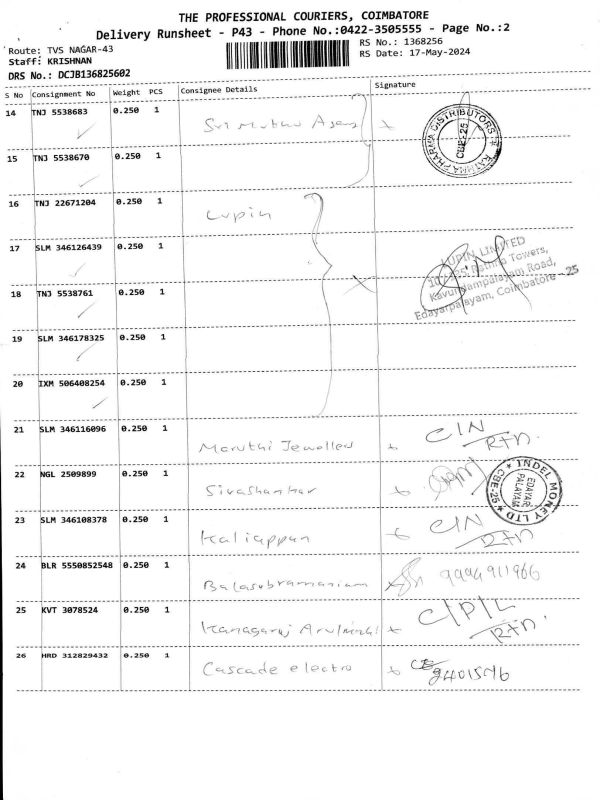 THE PROFESSIONAL COURIERS, COIMBATORE
Delivery Runsheet - P43 - Phone No.:0422-3505555 - Page No.:2
Route: TVS NAGAR-43
Staff: KRISHNAN
DRS No.: DCJB136825602
RS No.: 1368256
RS Date: 17-May-2024
S No Consignment No Weight PCS Consignee Details Signature
14 TNJ 5538683 0.250 1
KATHHA PHARMA DISTRIBUTORS
CBE-25
15 TNJ 5538670 0.250 1
16 TNJ 22671204 0.250 1 Lupin
17 SLM 346126439 0.250 1
LUPIN LIMITED
Rathna Towers,
Kavundampalayam Road,
Edayarpalayam, Coimbatore - 25
18 TNJ 5538761 0.250 1
19 SLM 346178325 0.250 1
20 IXM 506408254 0.250 1
21 SLM 346116096 0.250 1 Maruthi Jewellers C/N
RTN.
22 NGL 2509899 0.250 1 Sivashankar
INDEL MONEY LTD
CBE-25
EDAYAR
PALAYAM
23 SLM 346108378 0.250 1 Kaliappan C/N
RTN
24 BLR 5550852548 0.250 1 Balasubramaniam 9994911966
25 KVT 3078524 0.250 1 Kanagaraj C/P/L
RTN.
26 HRD 312829432 0.250 1 Cascade electro